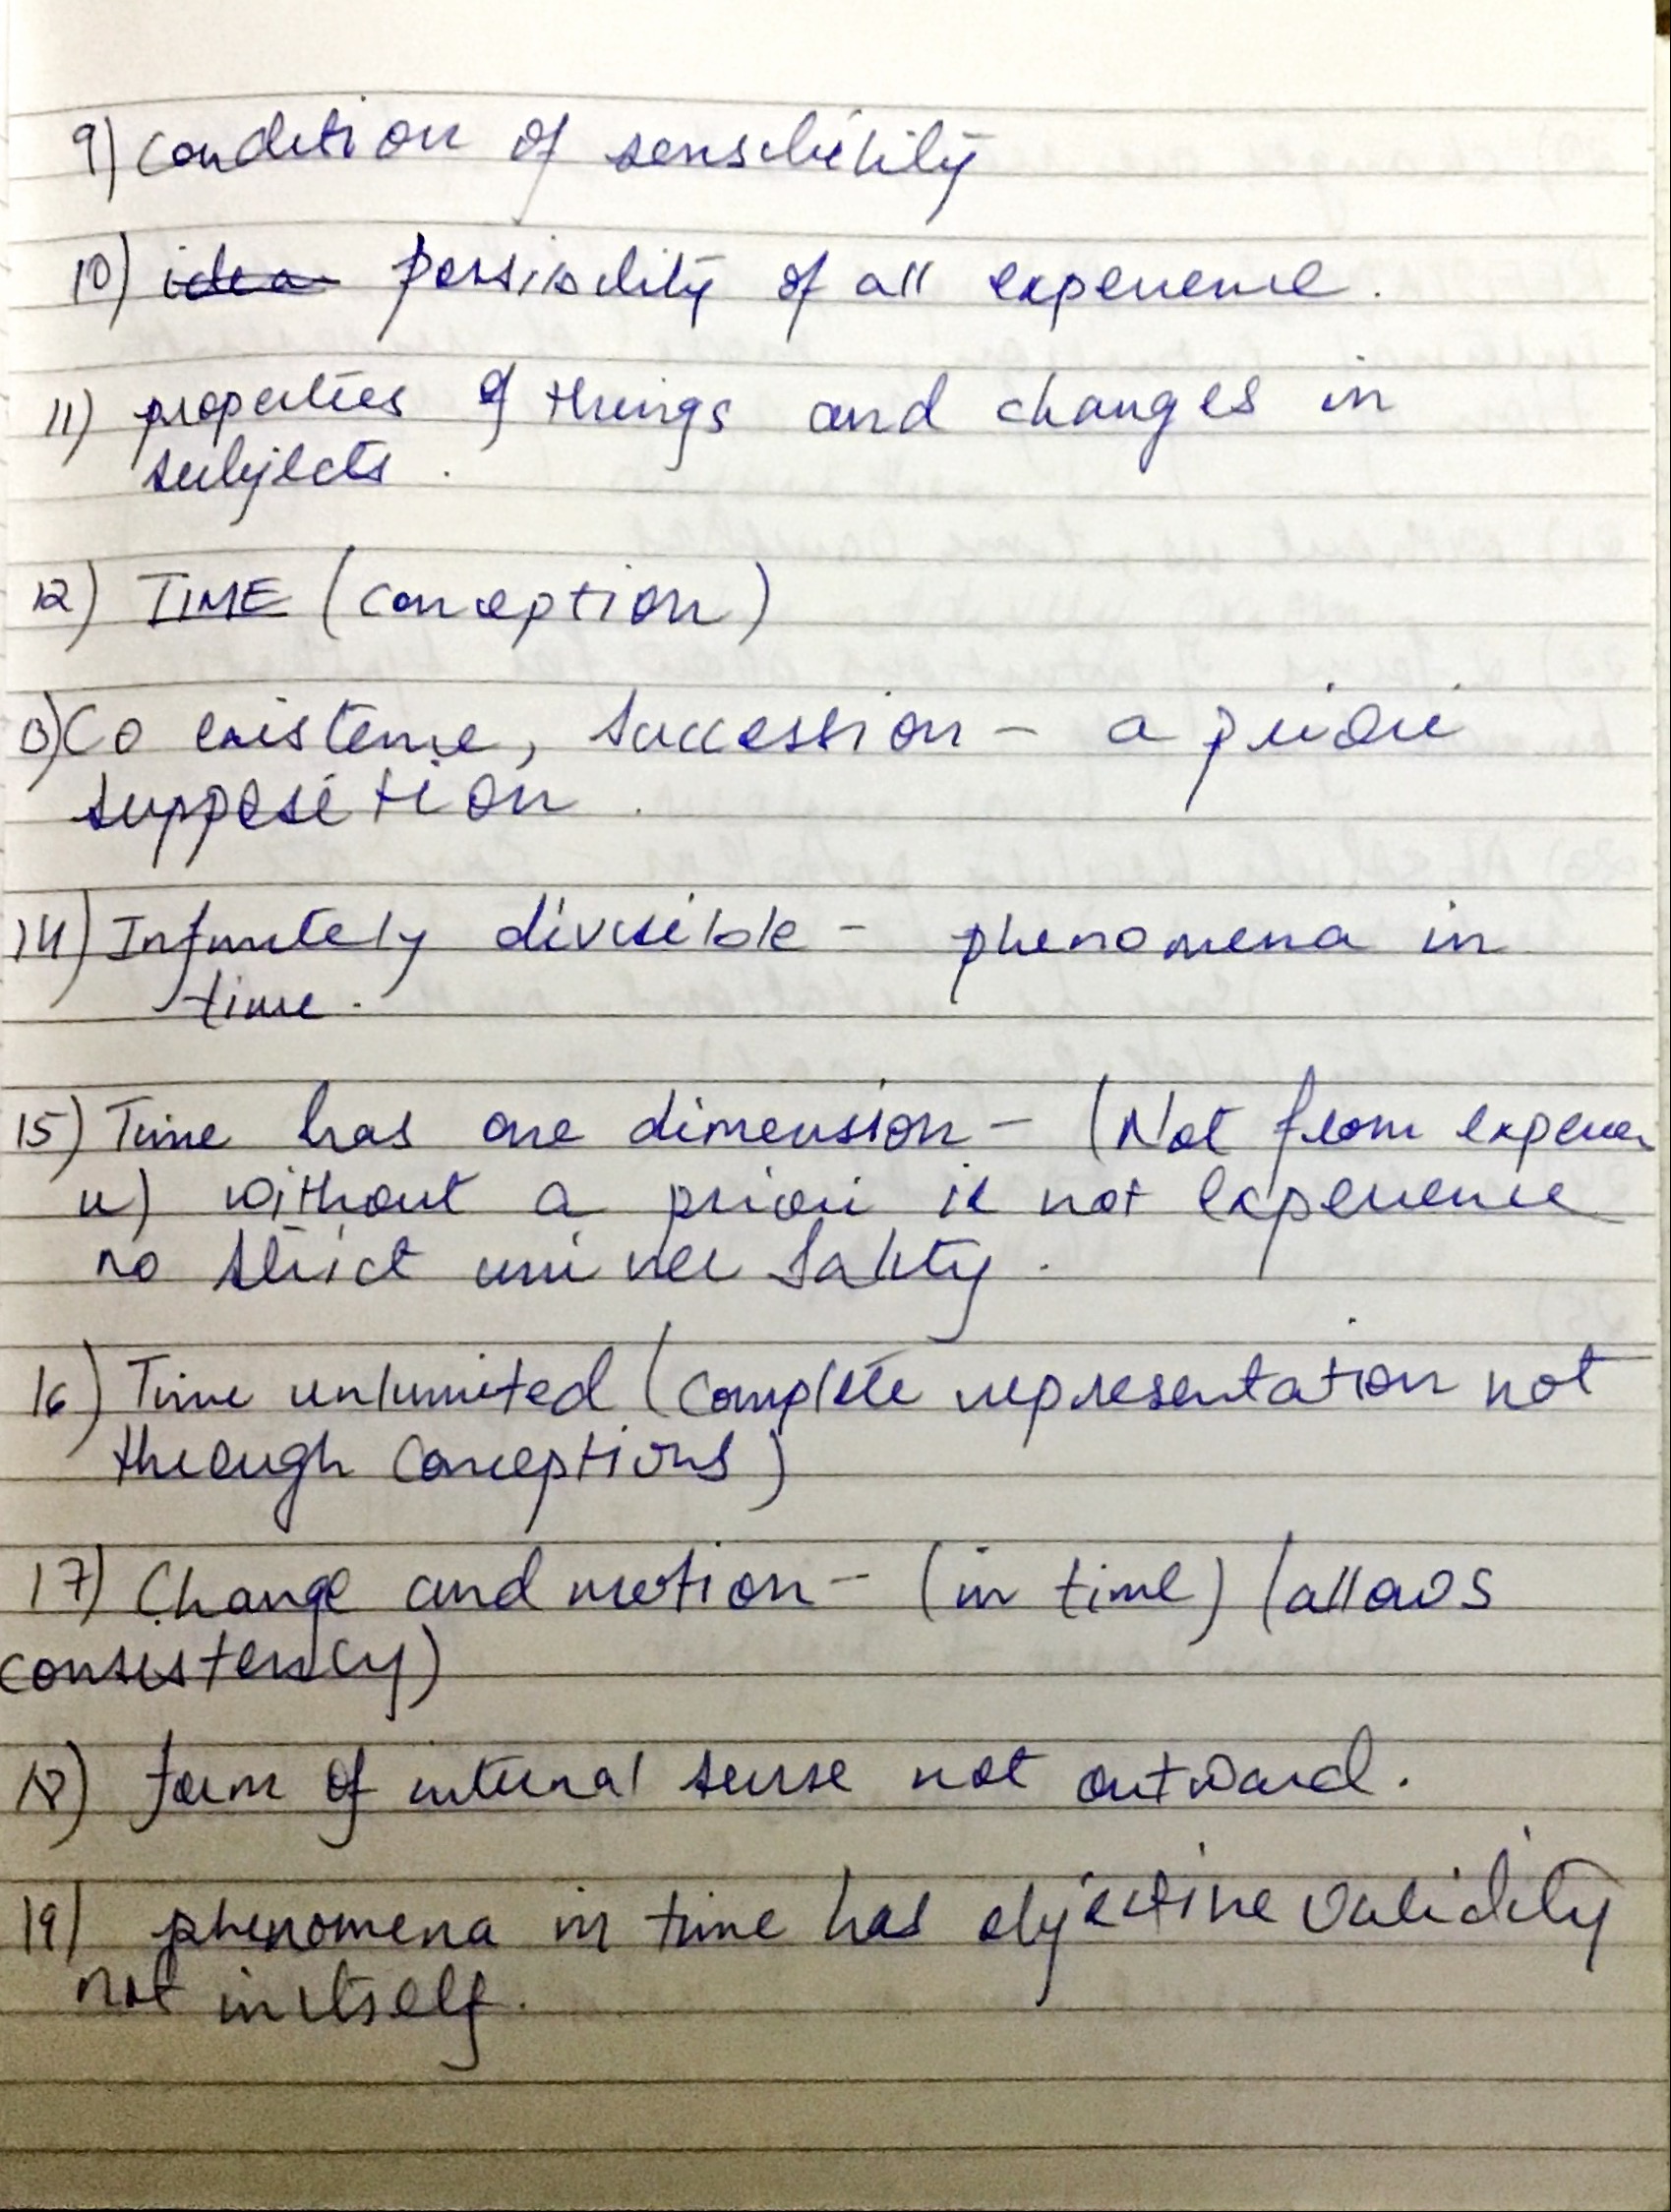 9) Condition of sensibility
10) idea possibility of all experience.
11) properties of things and changes in
subjects.
12) TIME (conception)
13) Co existence, succession - a priori
supposition.
14) Infinitely divisible - phenomena in
time.
15) Time has one dimension - (Not from experien
ce) without a priori it not experience
no strict universality.
16) Time unlimited (complete representation not
through conceptions)
17) Change and motion - (in time) (allows
consistency)
18) form of internal sense not outward.
19) phenomena in time has objective validity
not in itself.